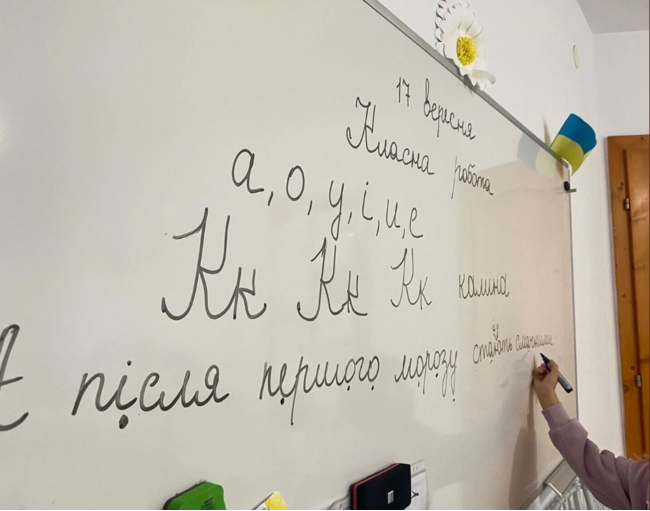 17 вересня
Класна робота
а, о, у, і, и, е
Кк Кк Кк калина
А після першого морозу стають смачними